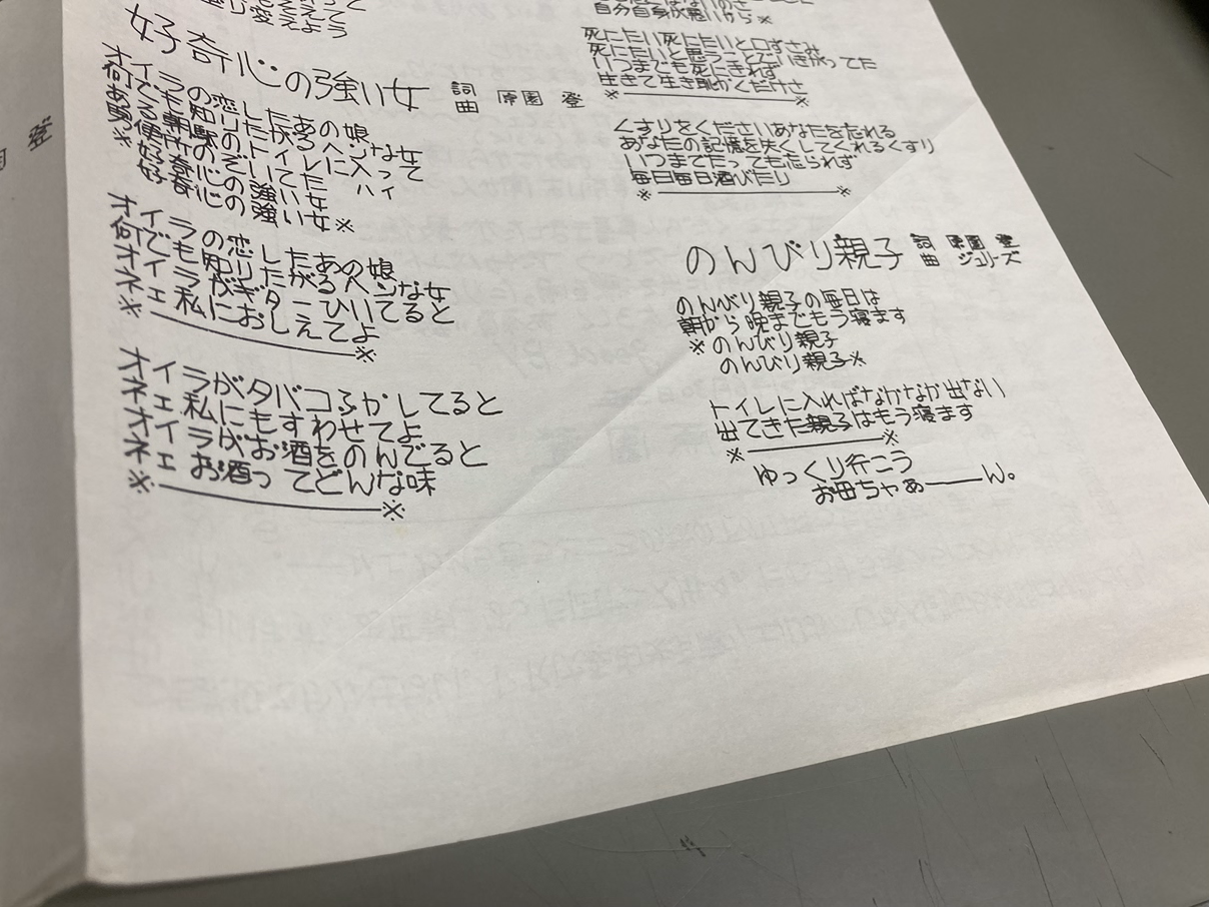 じ愛えよう
好奇心の強い女 詞曲 原園 登
オイラの恋したあの娘
何でも知りたがるヘンな女
ある朝駅のトイレに入って
便所のぞいてた ハイ
※好奇心の強い女
好奇心の強い女※
オイラの恋したあの娘
何でも知りたがるヘンな女
オイラがギターひいてると
ネェ私におしえてよ
※――――※
オイラがタバコふかしてると
ネェ私にもすわせてよ
オイラがお酒をのんでると
ネェお酒ってどんな味
※――――※
自分自身が悪いから※
死にたい死にたいと口ずさみ
死にたいと思うことでいきがってた
いつまでも死にきれず
生きて生き恥かくだけさ
※――――※
くすりをくださいあなたを忘れる
あなたの記憶を失くしてくれるくすり
いつまでたっても忘られず
毎日毎日酒びたり
※――――※
のんびり親子 詞 原園 登
曲 ジュリーズ
のんびり親子の毎日は
朝から晩までもう寝ます
※のんびり親子
のんびり親子※
トイレに入ればなかなか出ない
出てきた親子はもう寝ます
※――――※
ゆっくり行こう
お母ちゃあ――ん。
登